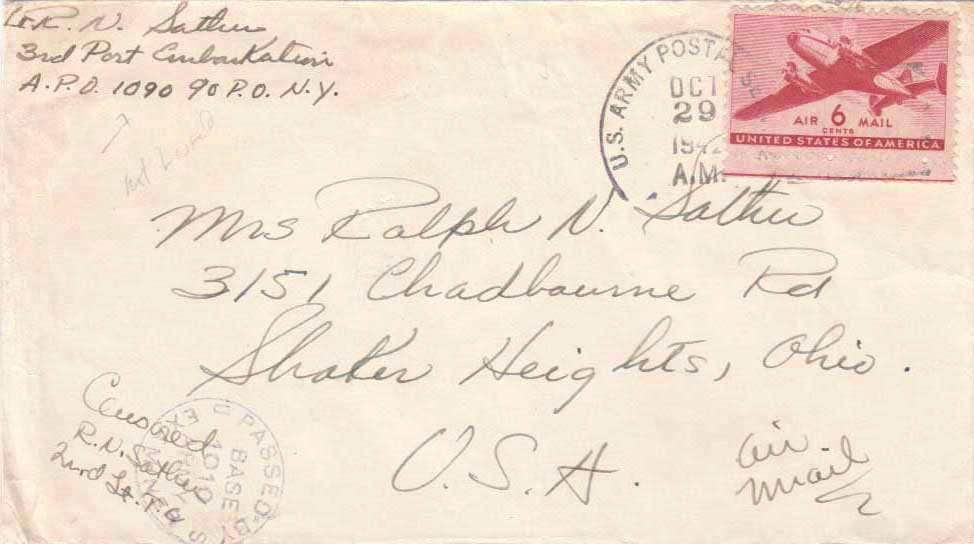 Lt. R. N. Sather
3rd Port Embarkation
A.P.O. 1090 90 P.O. N.Y.
U.S. ARMY POSTAL
OCT
29
1942
A.M.
AIR 6 MAIL
CENTS
UNITED STATES OF AMERICA
not
Mrs Ralph N. Sather
3151 Chadbourne Rd
Shaker Heights, Ohio.
U.S.A.
air
mail
Censored
R.N. Sather
2nd Lt. T.C.
PASSED BY
BASE
1010